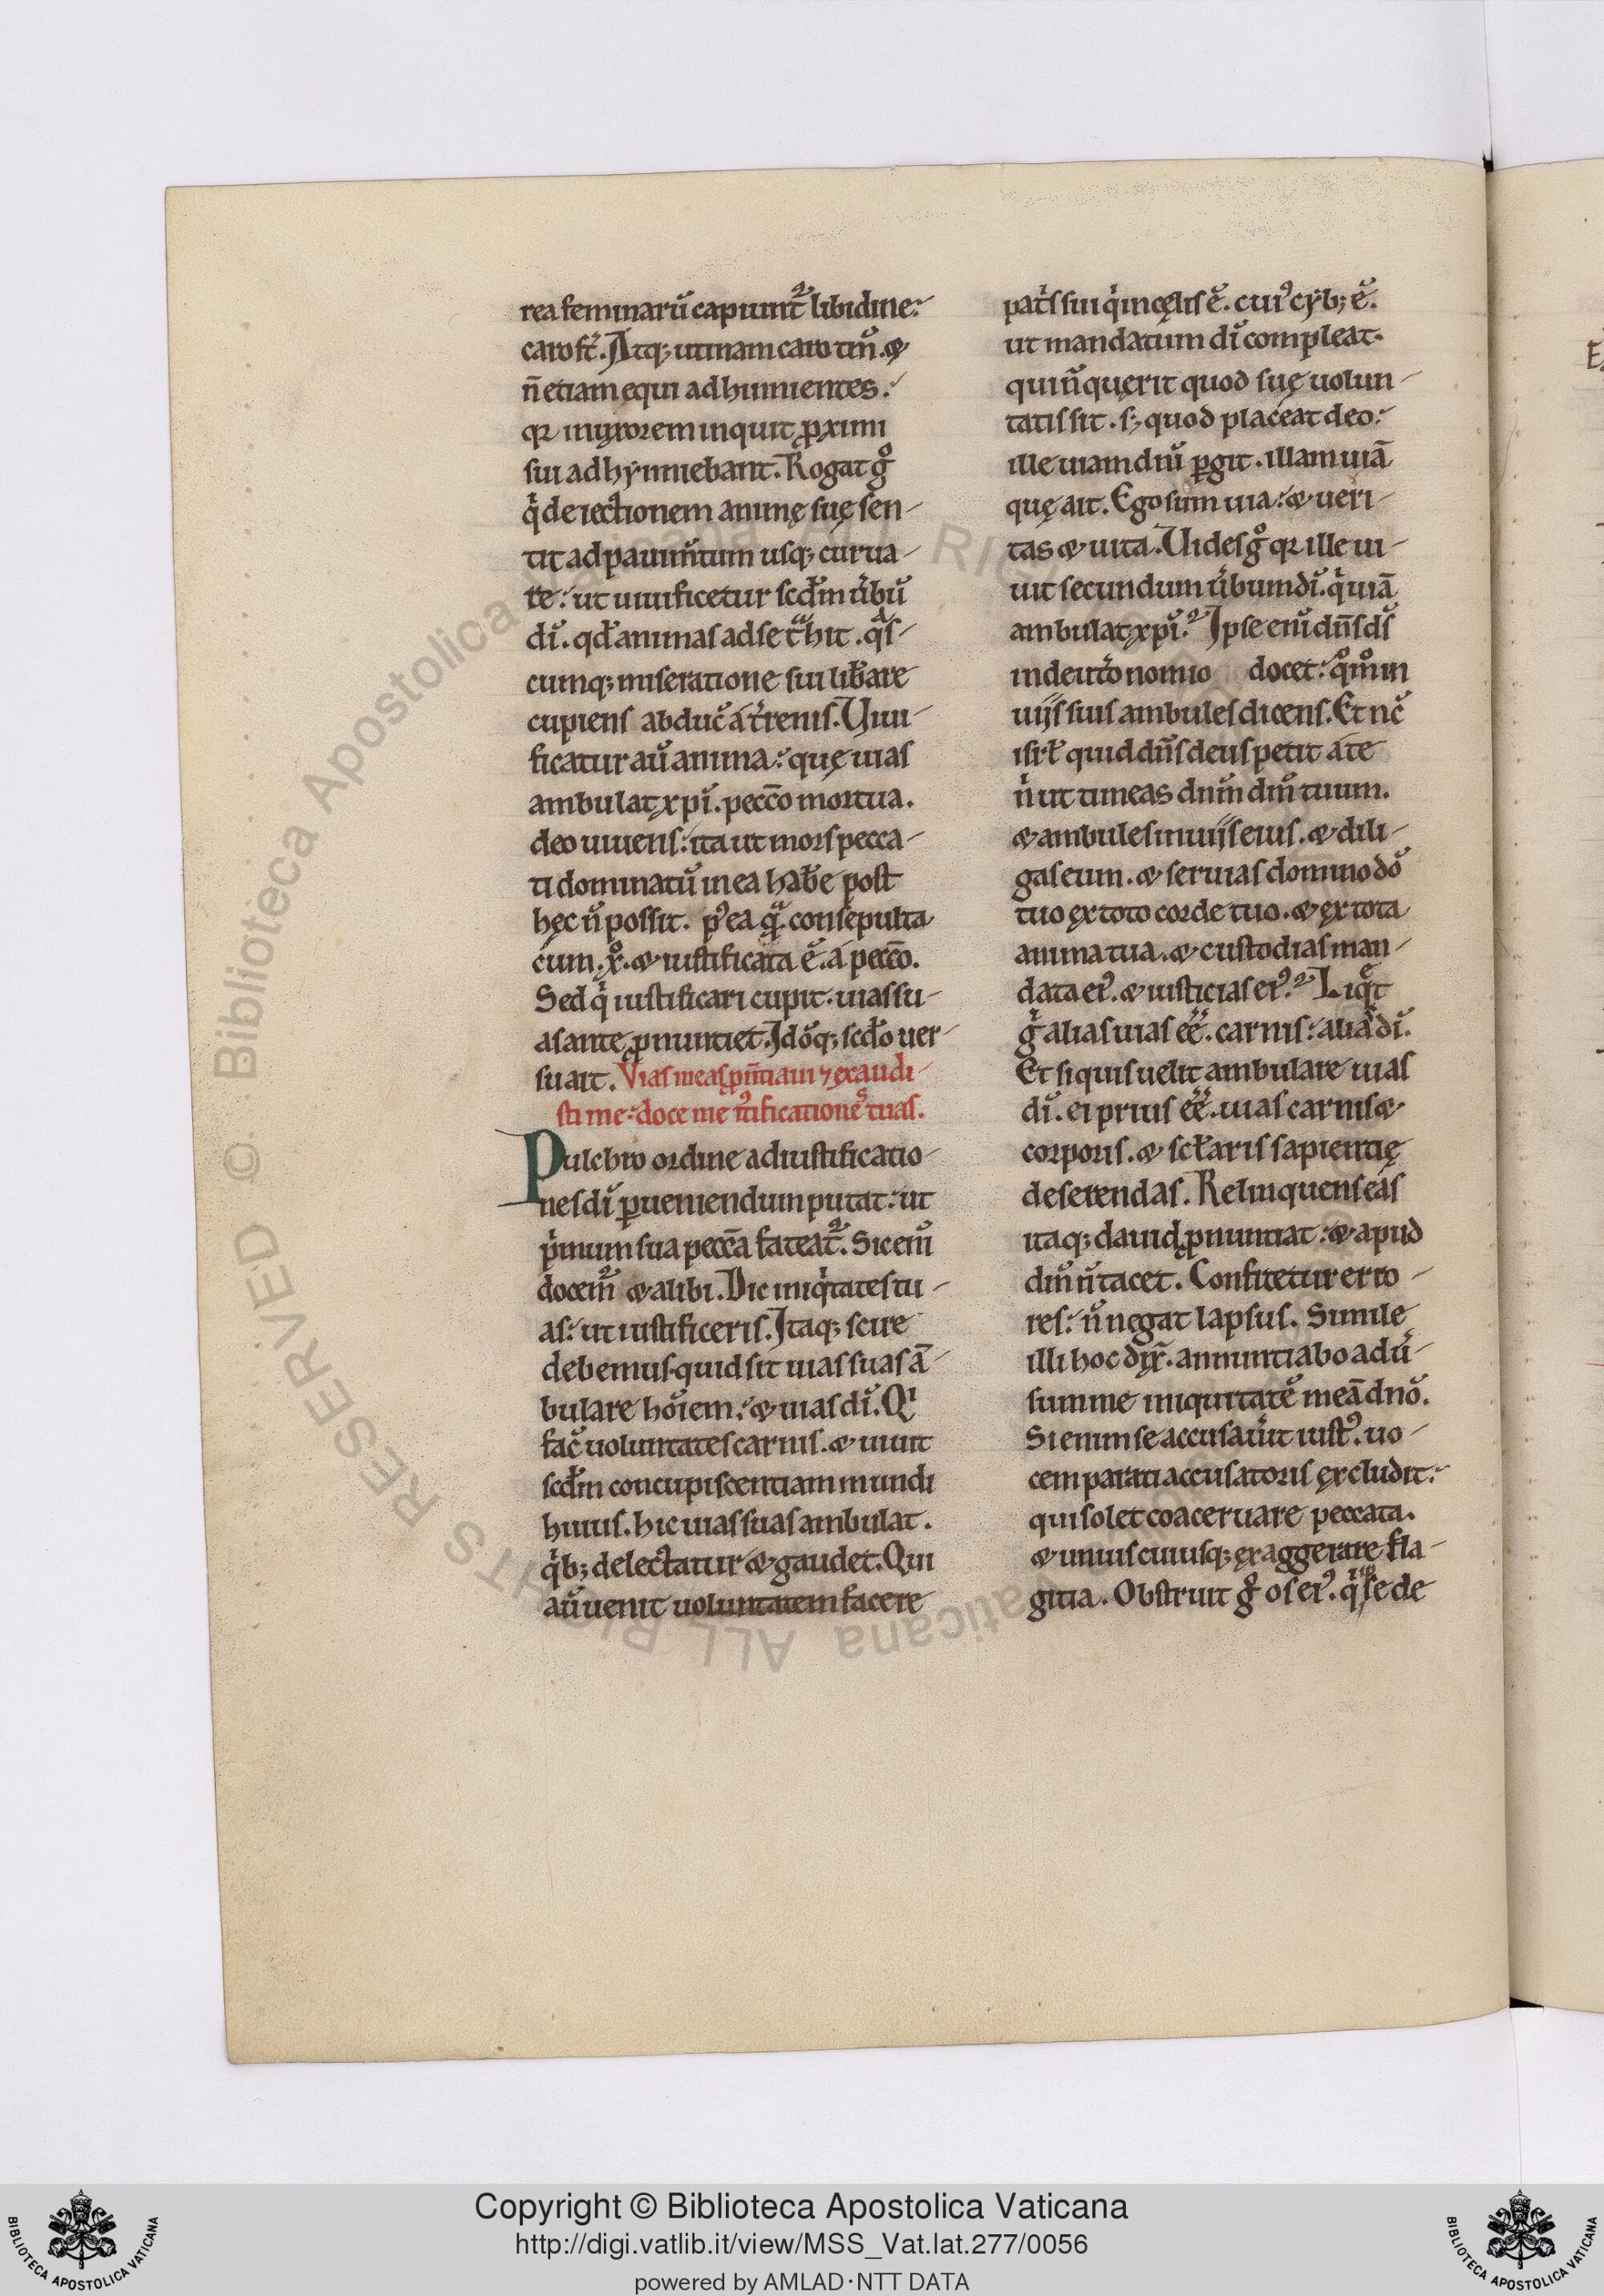 rea feminarū capiunt᷑ libidine.
caro st̄. Atq; utinam caro tm̄. &
n̄ etiam equi adhinnientes.
qꝛ in uxorem inquit ꝓximi
sui adhynniebant. Rogat gͦ
qͥ deiectionem animę suę sen-
tit ad pauim̄tum usq; curua-
re. ut uiuificetur scd̄m ūbū
dī. qd̄ animas ad se tͣhit. qͣs-
cumq; miseratione sui lib̄are
cupiens abduc̄ a t̄renis. Uiui-
ficatur aū anima. quę uias
ambulat xp̄i. pecc̄o mortua.
deo uiuens. ita ut mors pecca-
ti dominatū in ea hab̄e post
hęc n̄ possit. pꝰea qͣ consepulta
cum .xͦ. & iustificata ē. á pecc̄o.
Sed qͥ iustificari cupit. uias su-
as ante ꝓnuntiet. Idōq; scd̄o uer-
su ait. Vias meas ꝓn̄tiaui ⁊ exaudi-
sti me. doce me iꝰtificationes tuas.
Pulchro ordine ad iustificatio-
nes dī ꝑueniendum putat. ut
pͥmum sua pecc̄a fateat᷑. Sic enī
docem᷑ & alibi. Dic iniqͥtates tu-
as. ut iustificeris. Itaq; scire
debemus quid sit uias suas ā-
bulare hōiem. & uias dī. Qͥ
fac̄ uoluntates carnis. & uiuit
scd̄m concupiscentiam mundi
huius. hic uias suas ambulat.
qͥb; delectatur & gaudet. Qui
aū uenit uoluntatem facere
patͥs sui qͥ in cęlis ē. cuiꝰ cyb; ē.
ut mandatum dī compleat.
qui n̄ querit quod suę uolun-
tatis sit. s; quod placeat deo.
ille uiam dn̄i ꝑgit. illam uiā
quę ait. Ego sum uia. & ueri-
tas & uita. Uides gͦ qꝛ ille ui-
uit secundum ūbum dī. qͥ uiā
ambulat xp̄i. Ipse enī dn̄s ds̄
in deut̄onomio docet. qͦmͦ in
uijs suis ambules dicens. Et nc̄
isrl̄ quid dn̄s deus petit a te
nͥ ut timeas dnm̄ dm̄ tuum.
& ambules in uijs eius. & dili-
gas eum. & seruias domino dō
tuo ex toto corde tuo. & ex tota
anima tua. & custodias man-
data eiꝰ. & iusticias eiꝰ. Liqͣt
gͥ alias uias eē. carnis. alia dī.
Et si quis uelit ambulare uias
dī. ei prius eē. uias carnis &
corporis. & scl̄aris sapientię
deserendas. Relinquens eas
itaq; dauid ꝓnuntiat. & apud
dm̄ n̄ tacet. Confitetur erro-
res. n̄ negat lapsus. Simile
illi hoc dix̄. annuntiabo adū-
sum me iniquitatē meā dnō.
Si enim se accusaūit iustꝰ. uo-
cem parati accusatoris excludit.
qui solet coaceruare peccata.
& unius cuiusq; exaggerare fla-
gitia. Obstruit gͦ os eiꝰ. qͥ se de
Copyright © Biblioteca Apostolica Vaticana
http://digi.vatlib.it/view/MSS_Vat.lat.277/0056
powered by AMLAD·NTT DATA
BIBLIOTECA APOSTOLICA VATICANA
BIBLIOTECA APOSTOLICA VATICANA
© Biblioteca Apostolica Vaticana ALL RIGHTS RESERVED